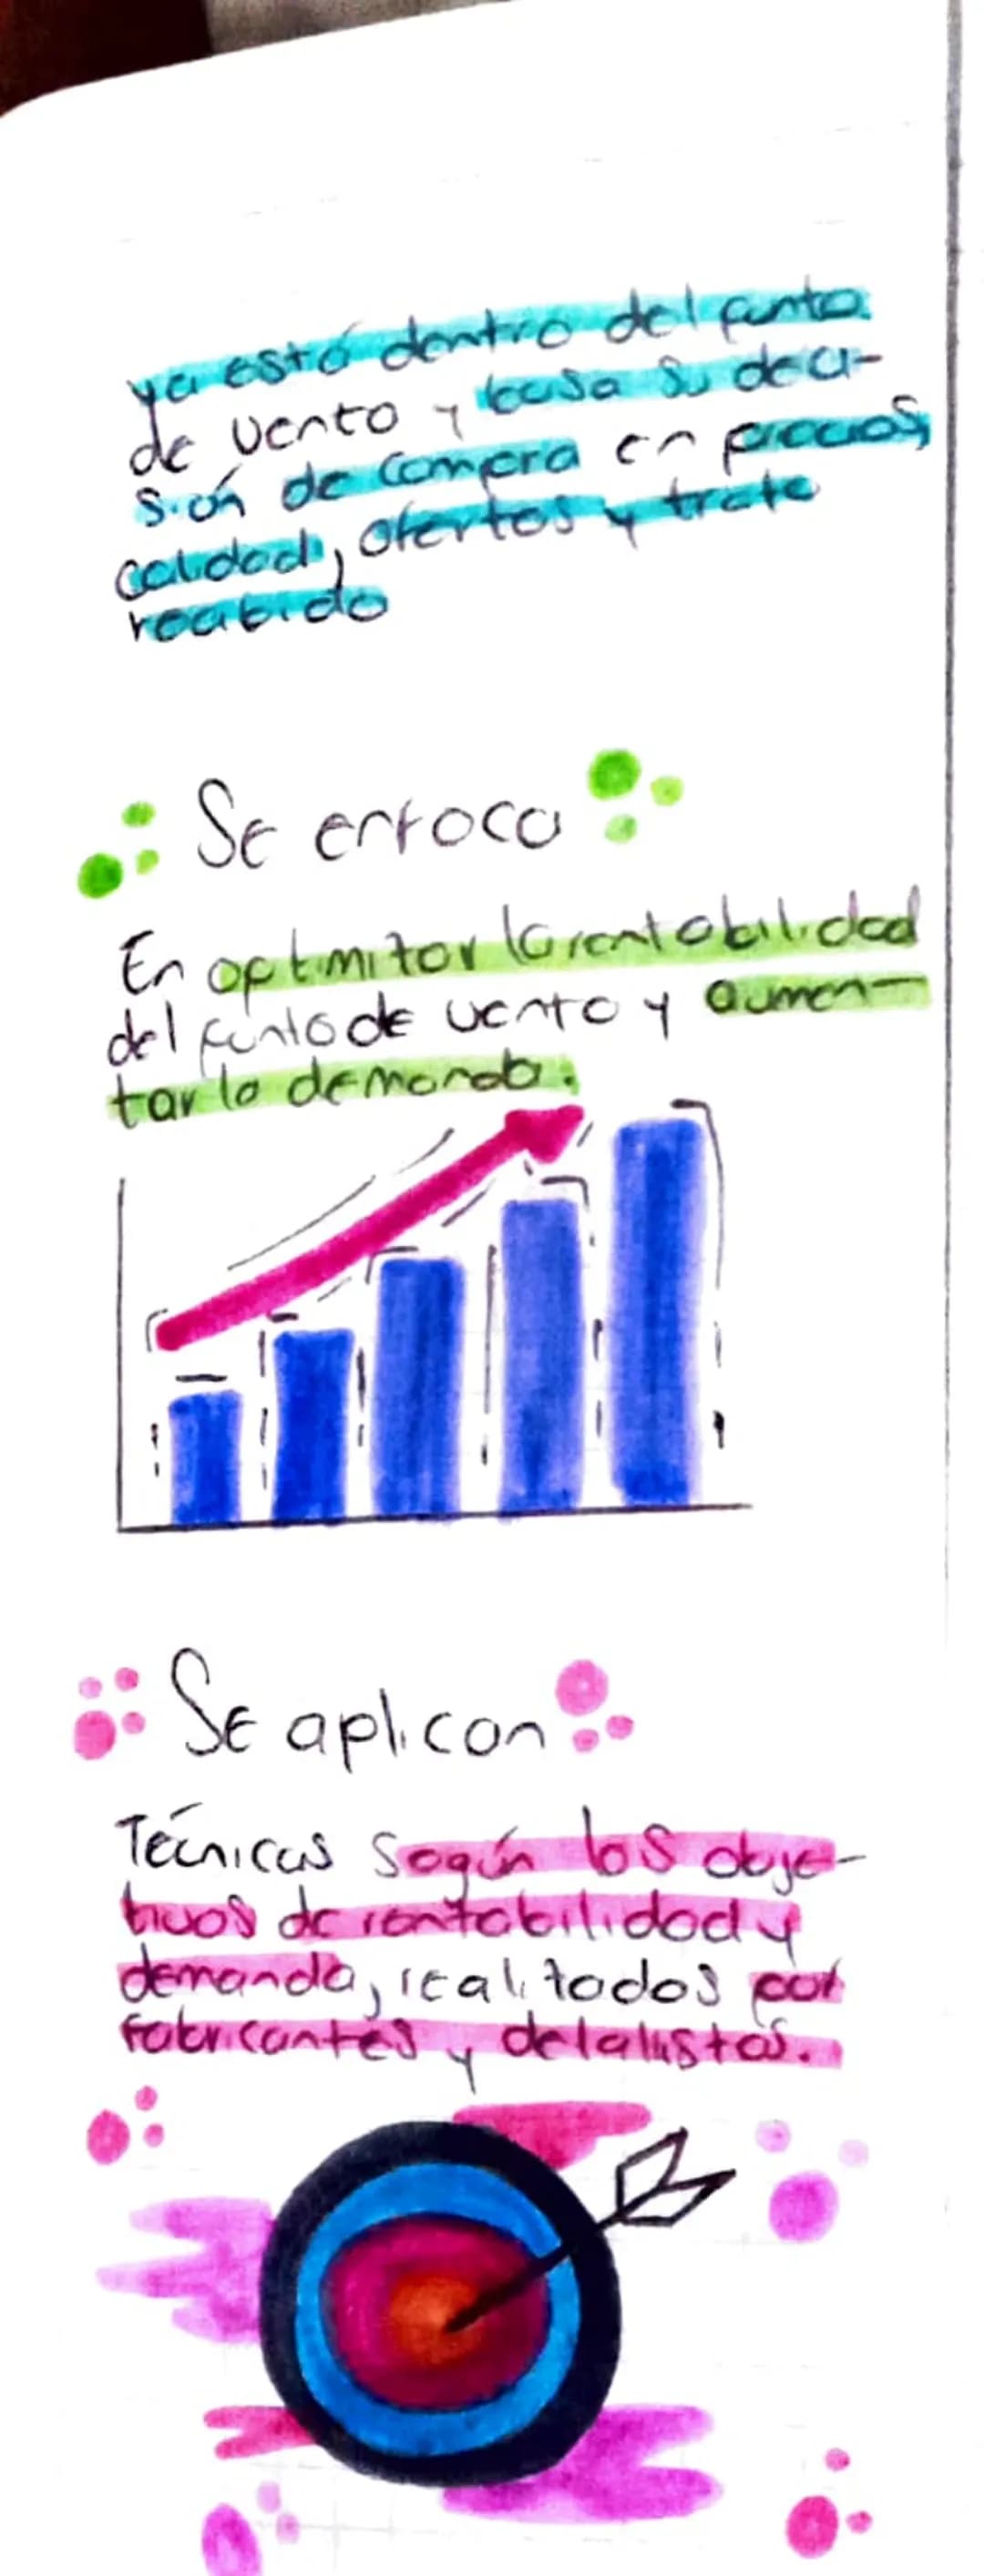 ya está dentro del punto
de venta y basa su deci-
sión de compra en precios,
calidad, ofertas y trato
recibido
Se enfoca
En optimizar la rentabilidad
del punto de venta y aumen-
tar la demanda.
Se aplican
Técnicas según los obje-
tivos de rentabilidad y
demanda, realizados por
fabricantes y detallistas.